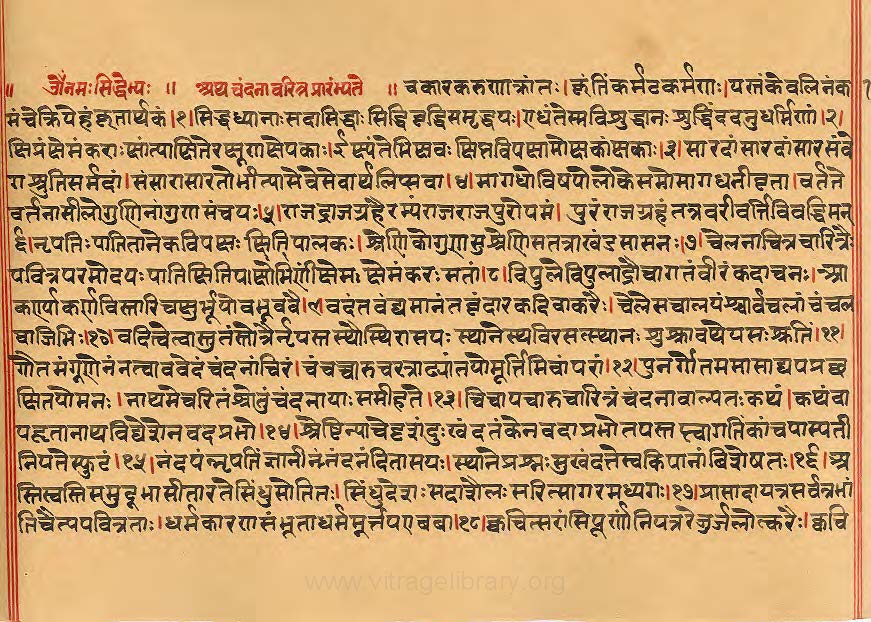 ॥ ॐ नमः सिद्धेभ्यः ॥ अथ चंदनाचरित्र प्रारंभ्यते ॥ चकार करुणाक्रांतः। कृतिं कर्मठकर्मणाः। यस्तं केवलिनं क
मंचेक्रियेहं कृतार्थकं।१। सिद्धध्यानाः सदासिद्धाः सिद्धिवृद्धिसमृद्धयः। एधंतेस्मविशुद्धानः शुद्धिं ददतु धर्मिणां।२।
क्षिप्रं क्षेमंकराः क्षांत्या क्षितेरक्षूणक्षेपकाः।
सारदां सारदां सारसंवे
रा श्रुतिसर्मदां। संसारासारतोभीत्या सेवे सेवार्थलिप्सवा।४। मागधोविषयोलोके समोमागधनीवृता। वर्तते
वर्तनासीलोगुणिनांगुणसंचयः।५। राजद्राजग्रहै रम्यं राजराजपुरोपमं। पुरं राजग्रहं तत्र वरीवर्त्ति विवर्द्धिमत्
६। नृपतिः पातितानेकविपक्षः क्षितिपालकः। श्रेणिको गुणमुश्रेणिस तत्राखंडसासनः।७। चेलनाचित्रचारित्रैः
पवित्रपरमोदयः पाति क्षितिप
क्षेमंकरः सतां।८। विपुले विपुलाद्रौ चागतं वीरं कदाचनः। आ
कर्ण्याकर्णविस्तारिचक्षुर्भूपो बभूव वै।९। वदंतवंद्यमानं तं वृंदारकदिवाकरैः। चेलेसचालयंश्चार्वचलां चंचल
वाजिभिः।१०। वंदित्वेत्वास्तुतंस्तोत्रैर्नृपस्तस्थौस्थिरासयः स्थानेस्थविरसत्स्थानः शुश्राव
११।
गौतमं गुणिनं नत्वा ववेदं चंदनां चिरं। चंचच्चारुचरत्राढ्यां तपोमूर्त्तिमिवापरां।१२। पुनर्गौतममासाद्यपप्रच्छ
क्षितपोमनः। नाथमेचरितं श्रोतुं चंदनायाः समीहते।१३। चिचापचारुचारित्रं चंदनावाल्पतः कथं। कथंवा
पहृतानाथविद्येशेनवदप्रभो।१४। श्रेष्टिन्याचेद्दशंदुःखंदतंकेनवदाप्रभो तपस्तप्त्वागतिंकांचपास्पती
निपतेस्फुटं।१५। नंदयंत्नृपतिं ज्ञानी नंतदनंदितासयः। स्थानेप्रश्नः सुखंदत्ते
विशेषतः।१६। अ
स्तिस्वस्तिसमुद्रूभासीतारते सिंधुसोतितः। सिंधुदेशः सदाशैलः सरित्सागरमध्यगः।१७। प्रासादायत्रसर्वत्रभां
तिचैत्यपवित्रताः। धर्मकारणसंभूताधर्ममूर्त्तपएवबा।१८। क्वचित्सरांसिपूर्णानिपत्ररेजुर्जलोत्करैः। क्वचि
www.vitragelibrary.org